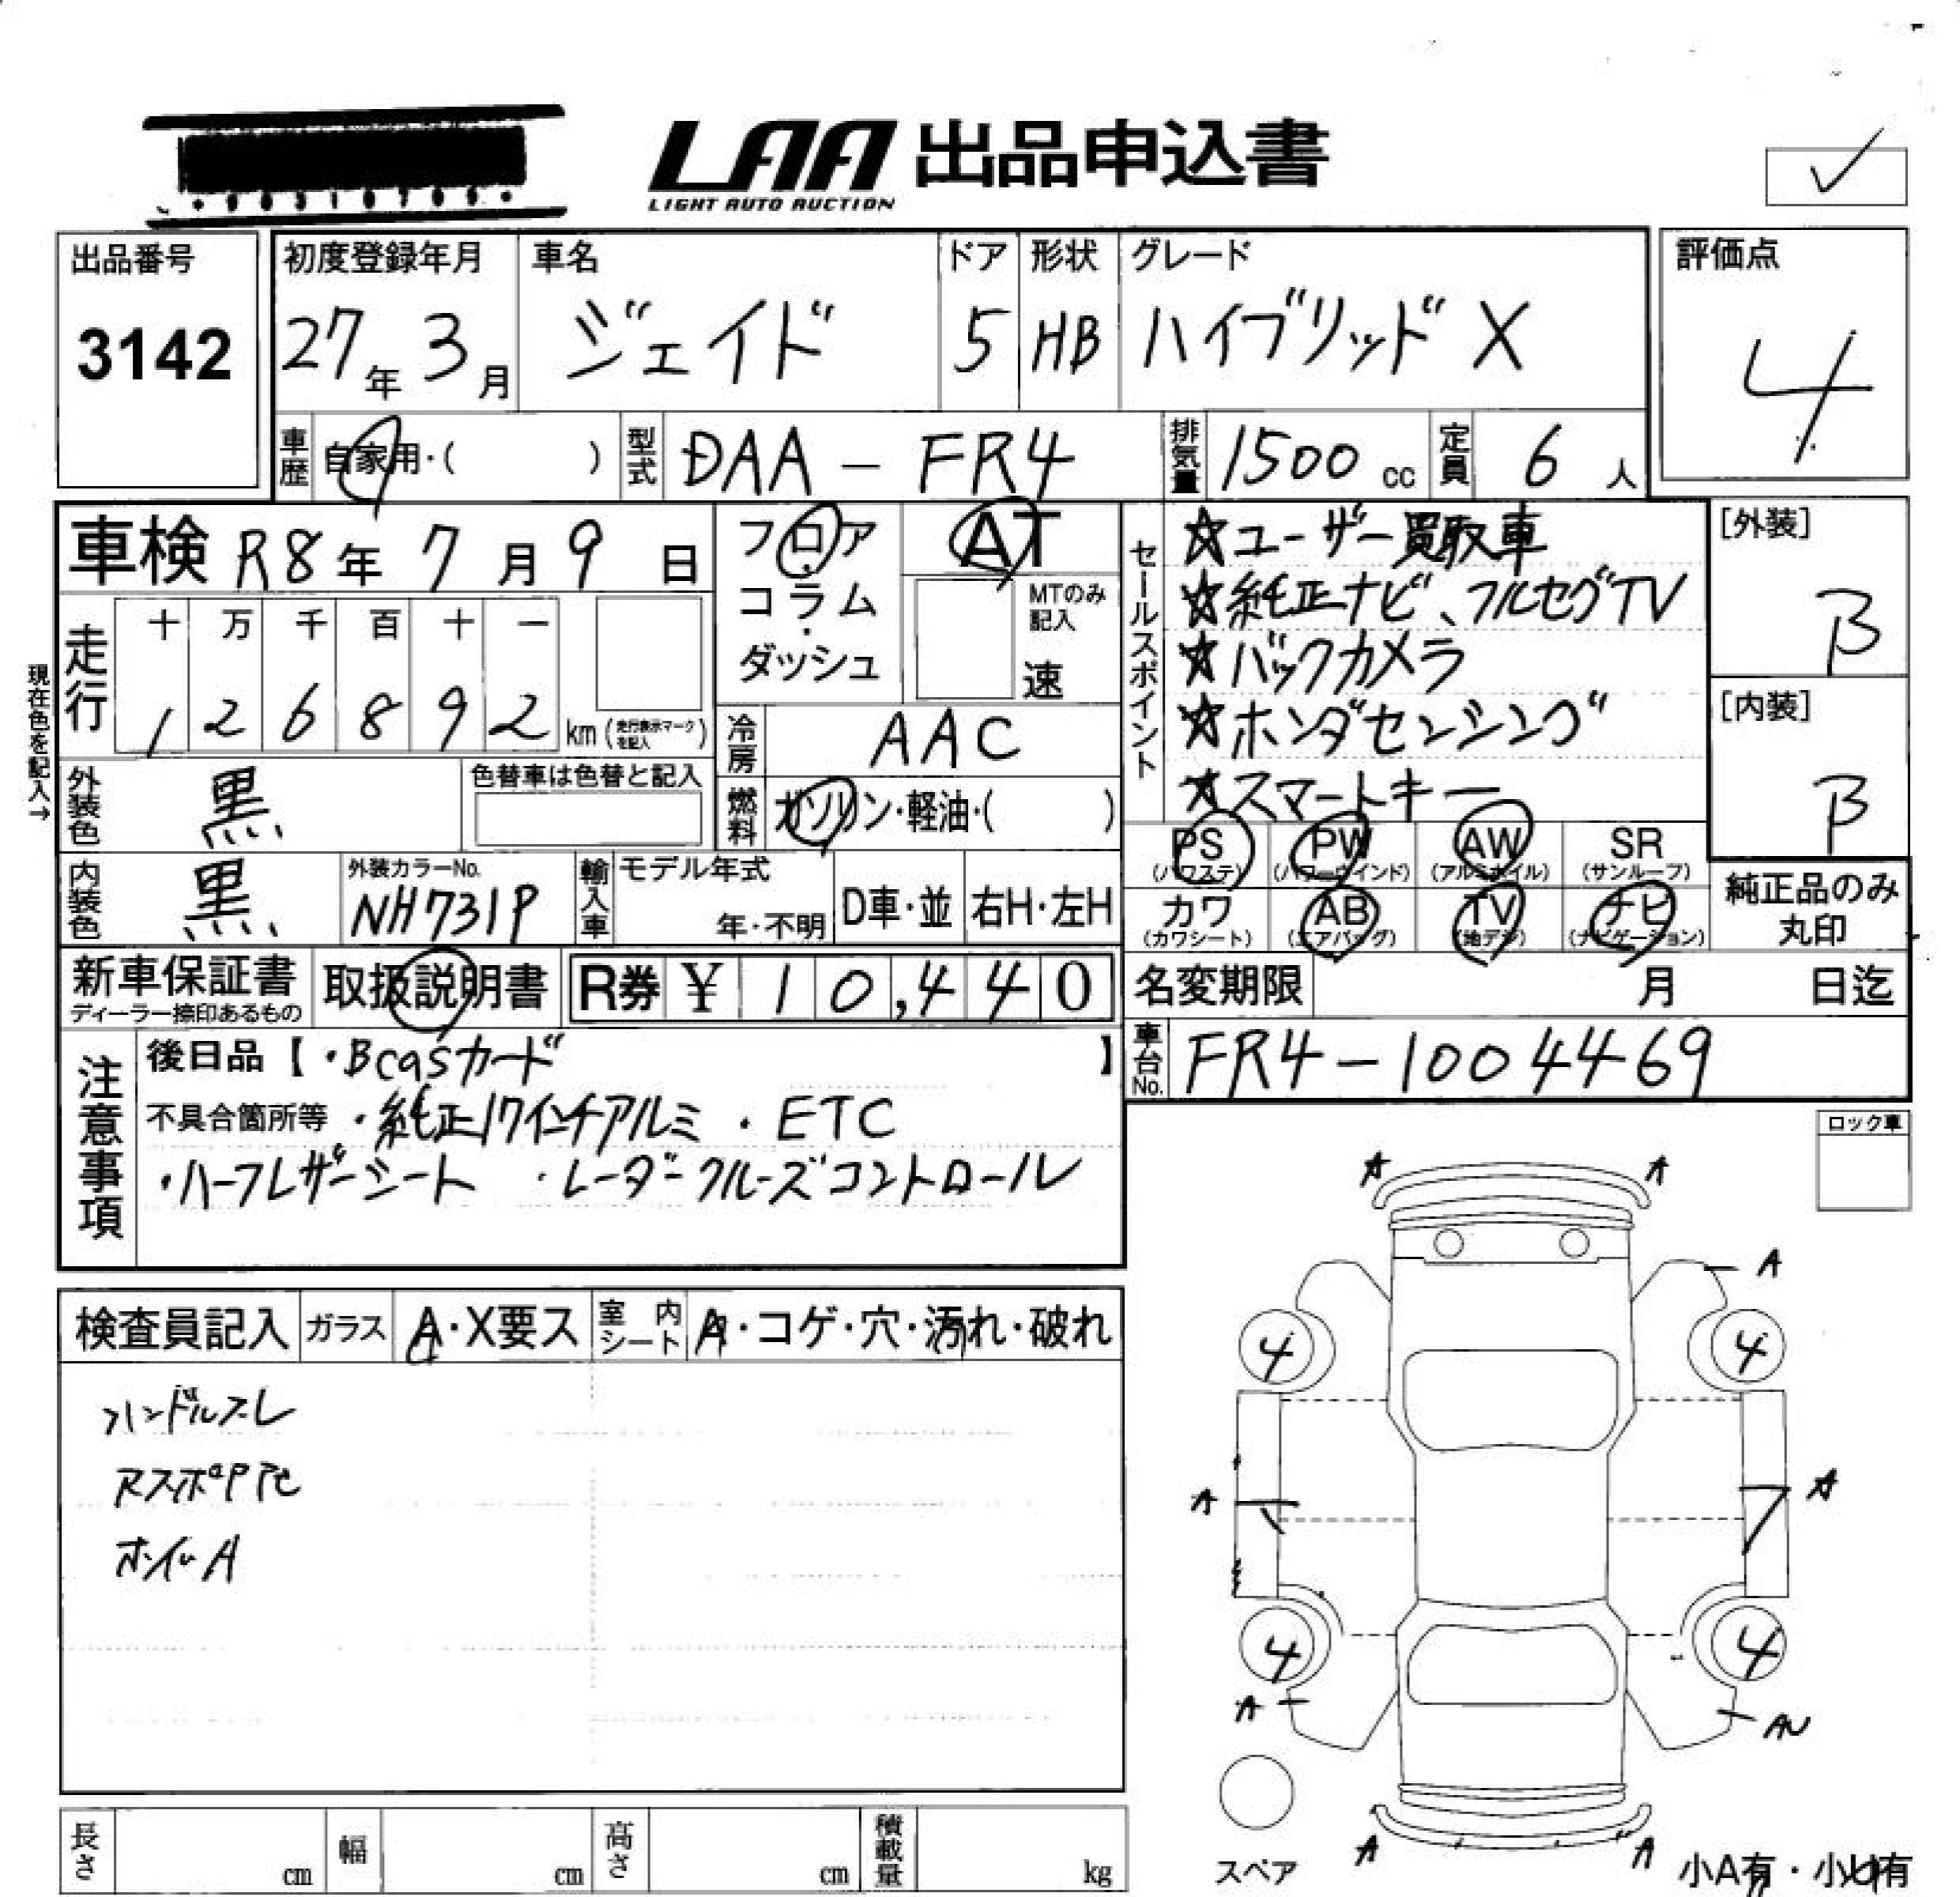 LAA 出品申込書
LIGHT AUTO AUCTION
出品番号
3142
初度登録年月
27年3月
車名
ジェイド
ドア
5
形状
HB
グレード
ハイブリッド X
評価点
4
車歴 自家用・( )
型式 DAA-FR4
排気量 1500 cc
定員 6 人
車検 R8年7月9日
フロア
コラム・
ダッシュ
AT
MTのみ記入
速
セールスポイント
☆ユーザー買取車
☆純正ナビ、フルセグTV
☆バックカメラ
☆ホンダセンシング
☆スマートキー
[外装]
B
[内装]
B
現在色を記入→
走行
十 万 千 百 十 一
1 2 6 8 9 2 km (走行表示マークを記入)
冷房 AAC
燃料 ガソリン・軽油・( )
外装色 黒
色替車は色替と記入
内装色 黒
外装カラーNo.
NH731P
輸入車 モデル年式
年・不明
D車・並
右H・左H
PS (パワステ)
PW (パワーウインド)
AW (アルミホイル)
SR (サンルーフ)
カワ (カワシート)
AB (エアバッグ)
TV (地デジ)
ナビ (ナビゲーション)
純正品のみ
丸印
新車保証書
ディーラー捺印あるもの
取扱説明書
R券 ¥ 10,440
名変期限 月 日迄
車台No. FR4-1004469
注意事項
後日品【・Bcasカード 】
不具合箇所等 ・純正17インチアルミ ・ETC
・ハーフレザーシート ・レーダークルーズコントロール
ロック車
検査員記入
ガラス A・X要ス
室内シート A・コゲ・穴・汚れ・破れ
ハンドルスレ
ホイルA
A A
A
4 4
A A
4 4
A AU
A A
スペア
小A有・小U有
長さ cm
幅 cm
高さ cm
積載量 kg